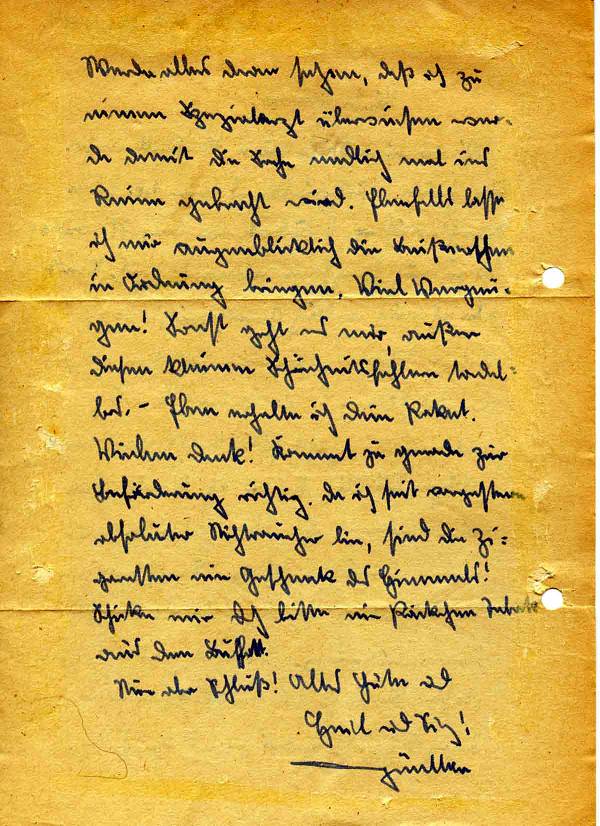 Werde alles dran setzen, daß ich zu
einem Spezialarzt überwiesen wer-
de damit die Sache endlich mal ins
Reine gebracht wird. Ebenfalls lasse
ich mir augenblicklich die
in Ordnung bringen. Viel Vergnü-
gen! Sonst geht es mir, außer
diesen kleinen Schönheitsfehlern tadel-
los. – Eben erhalte ich dein Paket.
Vielen Dank! Kommt ja gerade zur
Beförderung richtig. Da ich seit vorgestern
absoluter Nichtraucher bin, sind die Zi-
garetten ein Geschenk des Himmels!
Schicke mir doch bitte ein Päckchen Tabak
aus dem Buffett.
Nun aber Schluß! Alles Gute und
Heil und Sieg!
Günther